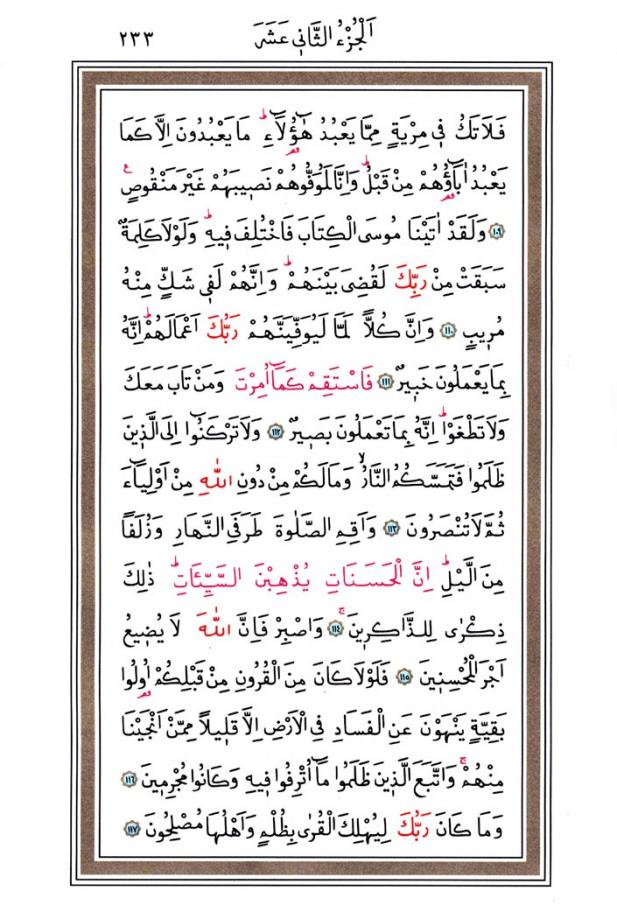 اَلْجُزْءُ الثَّانٖى عَشَرَ ٢٣٣
فَلَا تَكُ فٖى مِرْيَةٍ مِمَّا يَعْبُدُ هٰٓؤُ۬لَٓاءِۜ مَا يَعْبُدُونَ اِلَّا كَمَا
يَعْبُدُ اٰبَٓاؤُ۬هُمْ مِنْ قَبْلُۜ وَاِنَّا لَمُوَفُّوهُمْ نَصٖيبَهُمْ غَيْرَ مَنْقُوصٍۚ
﴿١٠٩﴾ وَلَقَدْ اٰتَيْنَا مُوسَى الْكِتَابَ فَاخْتُلِفَ فٖيهِۜ وَلَوْلَا كَلِمَةٌ
سَبَقَتْ مِنْ رَبِّكَ لَقُضِىَ بَيْنَهُمْۜ وَاِنَّهُمْ لَفٖى شَكٍّ مِنْهُ
مُرٖيبٍ ﴿١١٠﴾ وَاِنَّ كُلًّا لَمَّا لَيُوَفِّيَنَّهُمْ رَبُّكَ اَعْمَالَهُمْۜ اِنَّهُ
بِمَا يَعْمَلُونَ خَبٖيرٌ ﴿١١١﴾ فَاسْتَقِمْ كَمَٓا اُمِرْتَ وَمَنْ تَابَ مَعَكَ
وَلَا تَطْغَوْاۜ اِنَّهُ بِمَا تَعْمَلُونَ بَصٖيرٌ ﴿١١٢﴾ وَلَا تَرْكَنُٓوا اِلَى الَّذٖينَ
ظَلَمُوا فَتَمَسَّكُمُ النَّارُۙ وَمَا لَكُمْ مِنْ دُونِ اللّٰهِ مِنْ اَوْلِيَٓاءَ
ثُمَّ لَا تُنْصَرُونَ ﴿١١٣﴾ وَاَقِمِ الصَّلٰوةَ طَرَفَىِ النَّهَارِ وَزُلَفًا
مِنَ الَّيْلِۜ اِنَّ الْحَسَنَاتِ يُذْهِبْنَ السَّيِّئَاتِۜ ذٰلِكَ
ذِكْرٰى لِلذَّاكِرٖينَۚ ﴿١١٤﴾ وَاصْبِرْ فَاِنَّ اللّٰهَ لَا يُضٖيعُ
اَجْرَ الْمُحْسِنٖينَ ﴿١١٥﴾ فَلَوْلَا كَانَ مِنَ الْقُرُونِ مِنْ قَبْلِكُمْ اُو۬لُوا
بَقِيَّةٍ يَنْهَوْنَ عَنِ الْفَسَادِ فِى الْاَرْضِ اِلَّا قَلٖيلًا مِمَّنْ اَنْجَيْنَا
مِنْهُمْۚ وَاتَّبَعَ الَّذٖينَ ظَلَمُوا مَٓا اُتْرِفُوا فٖيهِ وَكَانُوا مُجْرِمٖينَ ﴿١١٦﴾
وَمَا كَانَ رَبُّكَ لِيُهْلِكَ الْقُرٰى بِظُلْمٍ وَاَهْلُهَا مُصْلِحُونَ ﴿١١٧﴾